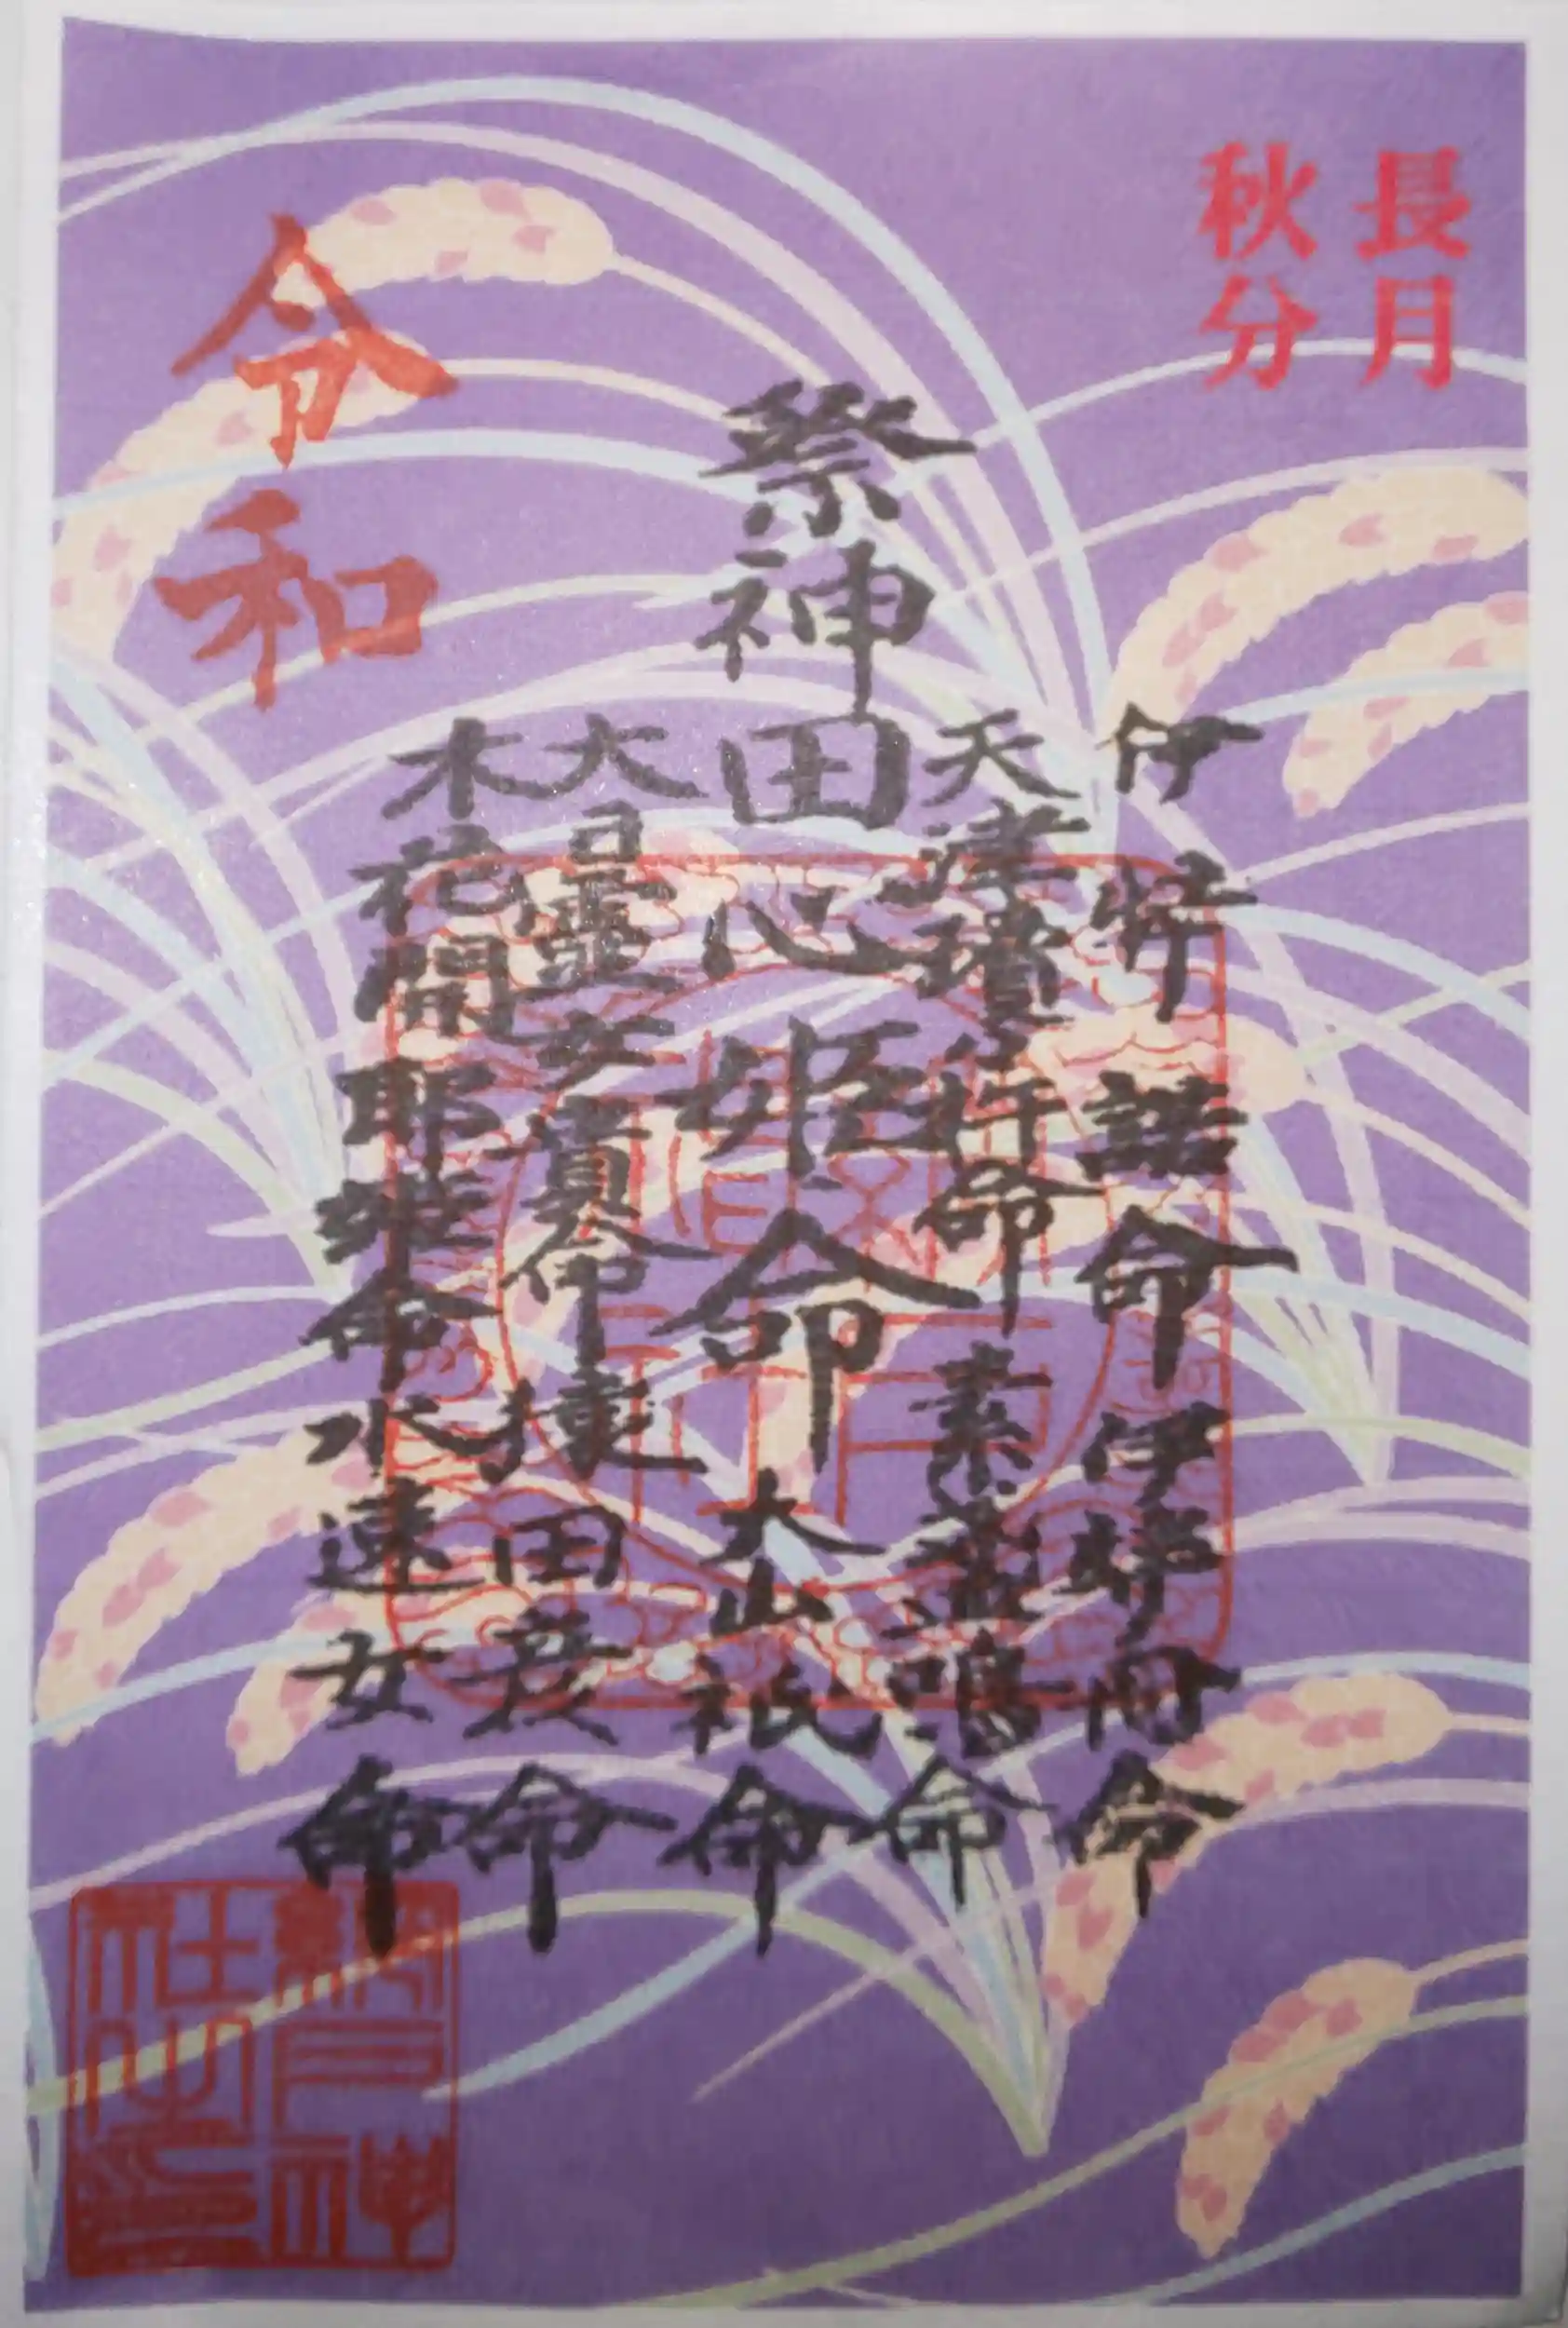 長月
秋分
伊弉諾命 伊弉冊命
天津瓊々杵命 素盞鳴命
祭神 田心姫命 大山祇命
大日霊女貴命 猿田彦命
木花開耶姫命 水速女命
令和